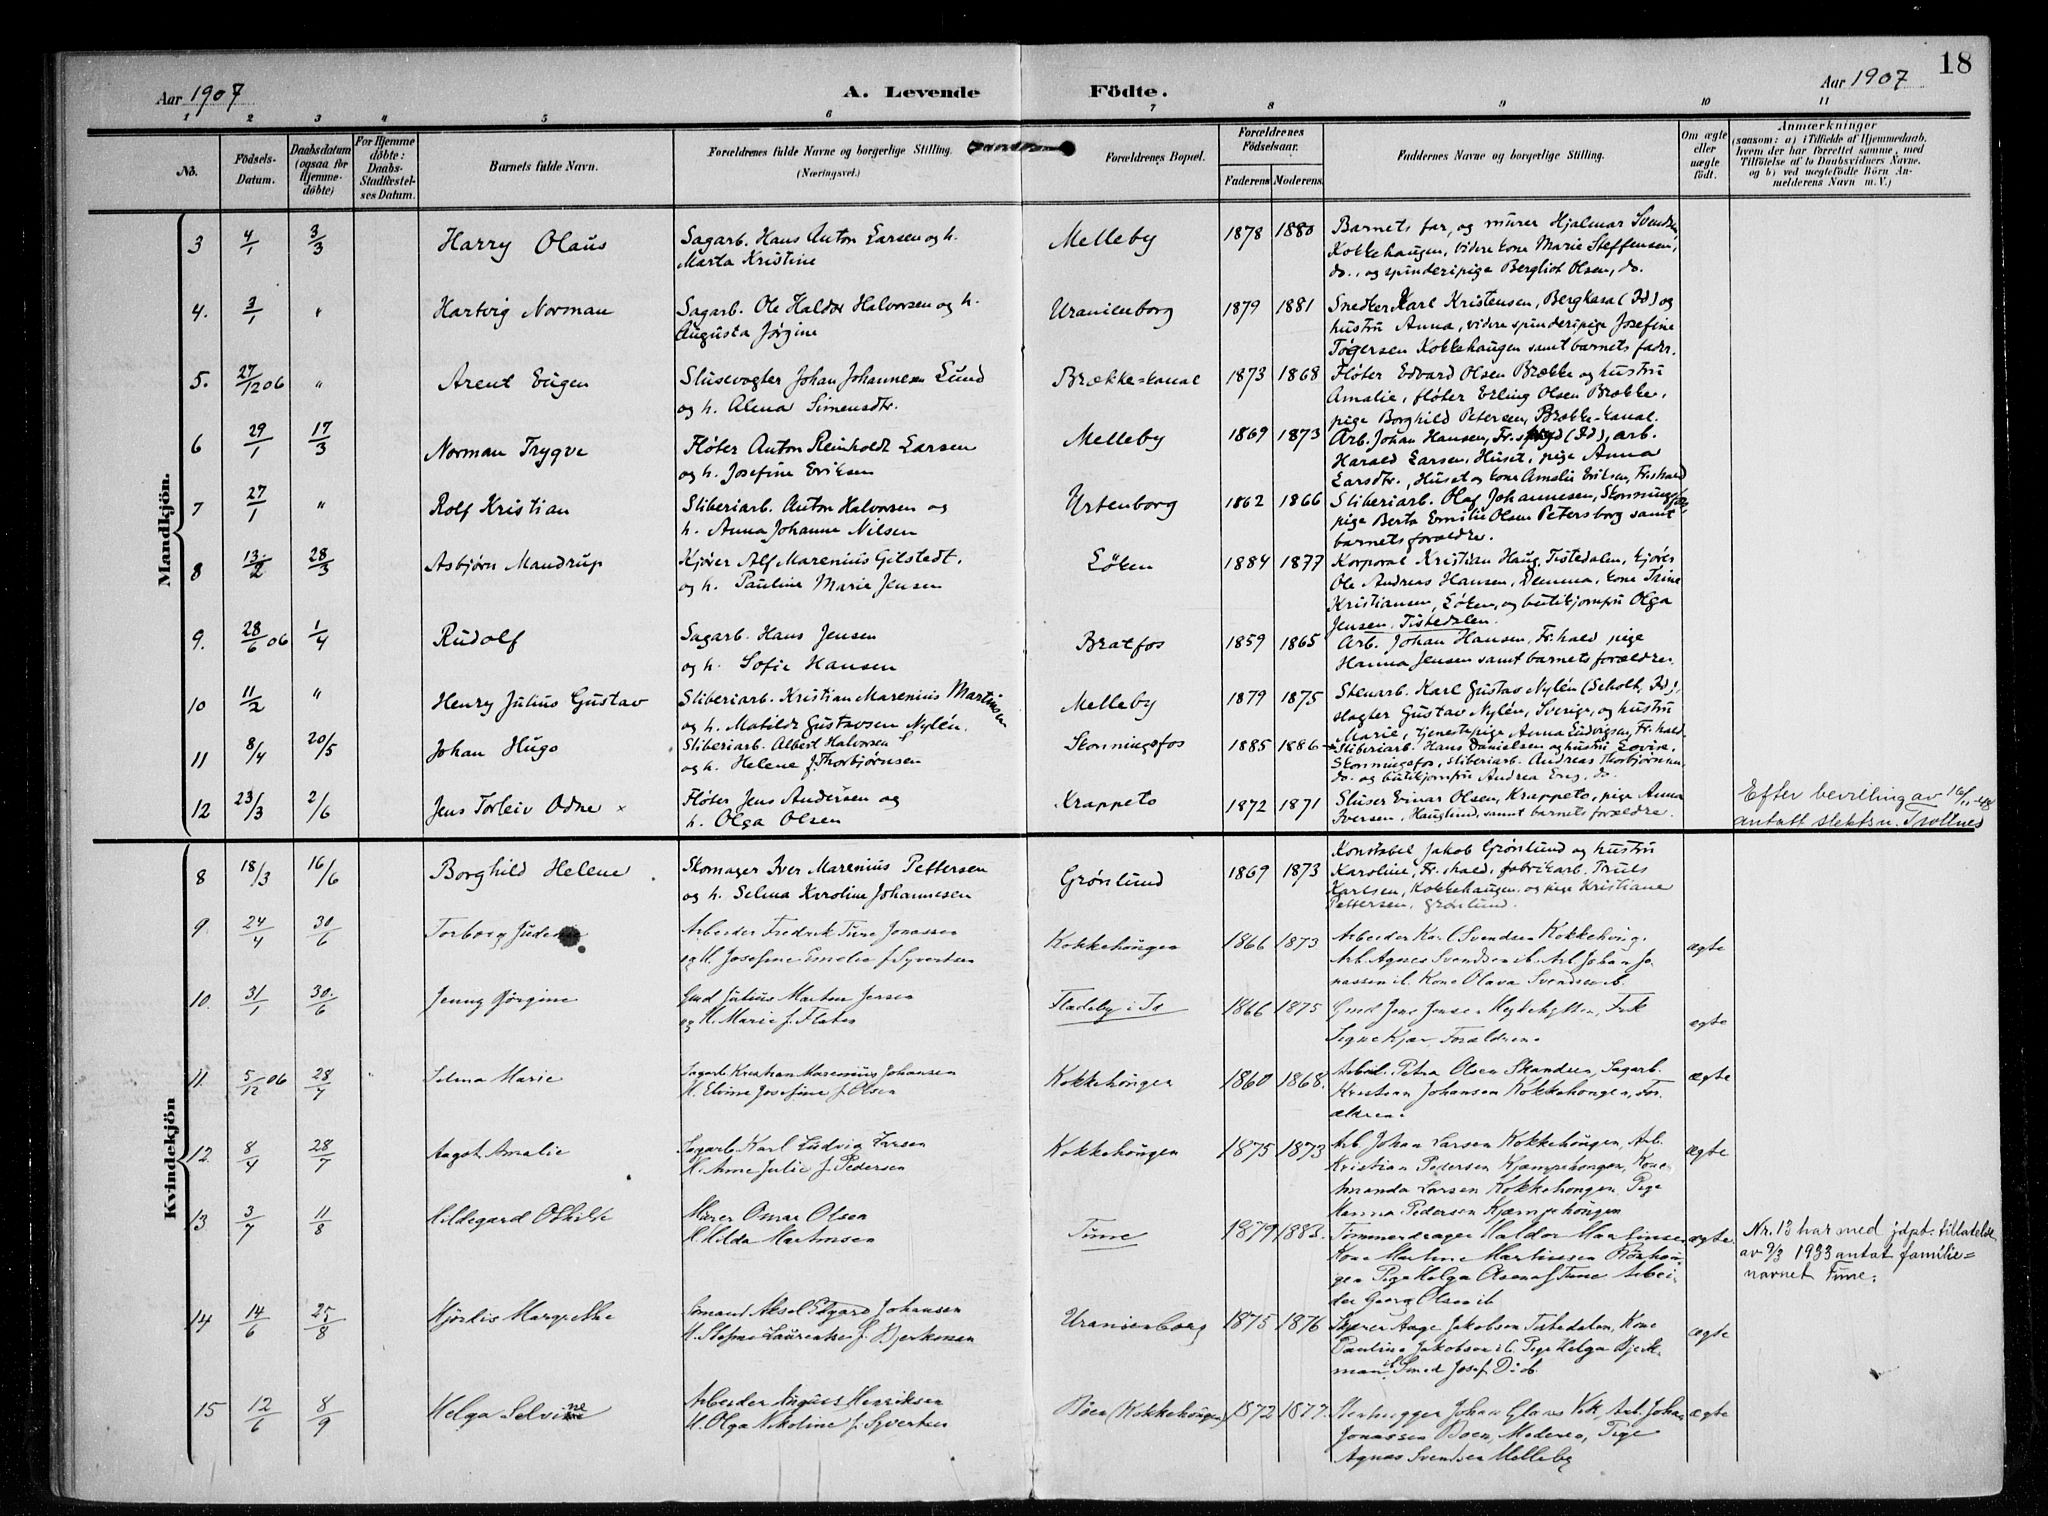 18
Aar 1907 A. Levende Födte. Aar 1907
1 2 3 4 5 6 7 8 9 10 11
No. Födsels-Datum. Daabsdatum (ogsaa for Hjemmedöbte) For Hjemmedöbte: Daabs-Stadfæstelses Datum. Barnets fulde Navn. Forældrenes fulde Navne og borgerlige Stilling. (Næringsvei.) Forældrenes Bopæl. Forældrenes Födselsaar. Faderens. Moderens. Faddernes Navne og borgerlige Stilling. Om ægte eller uægte födt. Anmærkninger (saasom: a) i Tilfælde af Hjemmedaab, hvem der har forrettet samme, med Tilföielse af to Daabsvidners Navne. og b) ved uægtefödte Börn Anmelderens Navn m. V.)
Mandkjön.
3 4/1 3/3 Harry Olaus Sagarb. Hans Anton Larsen og h. Melleby 1878 1880 Barnets far, og murer Hjalmar Svendsen,
Marta Kristine Kokkehaugen, videre kone Marie Steffensen,
do., og spinderipige Bergliot Olsen, do.
4. 3/1 " Hartvig Norman Sagarb. Ole Haldor Halvorsen og h. Uranienborg 1879 1881 Snedker Karl Kristensen, Bergkasa (Id) og
Augusta Jørgine hustru Anna, videre spinderipige Josefine
Tøgersen Kokkehaugen samt barnets fader.
5. 27/12 06 " Arent Eugen Slusevogter Johan Johannesen Lund Brække-kanal 1873 1868 Fløter Edvard Olsen Brække og hustru
og h. Alena Simensdtr. Amalie, fløter Erling Olsen Brække,
pige Borghild Petersen, Brække-kanal.
6 29/1 17/3 Norman Trygve Fløter Anton Reinholdt Larsen Melleby 1869 1873 Arb. Johan Hansen, (Id), arb.
og h. Josefine Eriksen Harald Larsen, Huset, pige Anna
Larsdtr., Huset og kone Amalie Eriksen, Fr.hald
7 27/1 " Rolf Kristian Sliberiarb. Anton Halvorsen og Urtenborg 1862 1866 Sliberiarb. Olaf Johannesen, Skonningsfos,
h. Anna Johanne Nilsen pige Berta Emilie Olsen Petersborg samt
barnets forældre.
8 13/2 28/3 Asbjørn Mandrup Kjører Alf Marenius Gilstedt. Løken 1884 1877 Korporal Kristian Haug, Tistedalen, kjører
og h. Pauline Marie Jensen Ole Andreas Hansen, Demma, kone Trine
Kristiansen, Løken, og butikjomfru Olga
Jensen, Tistedalen.
9. 28/6 06 1/4 Rudolf Sagarb. Hans Jensen Bratfos 1859 1865 Arb. Johan Hansen, Fr.hald, pige
og h. Sofie Hansen Hanna Jensen samt barnets forældre.
10 11/2 " Henry Julius Gustav Sliberiarb. Kristian Marenius Martinsen Melleby 1879 1875 Stenarb. Karl Gustav Nylén (Scholt, Id),
og h. Matilde Gustavsen Nylén. slagter Gustav Nylén, Sverige, og hustru
Marie, tjenestepige Anna Ludvigsen, Fr.hald.
11 8/4 20/5 Johan Hugo Sliberiarb. Albert Halvorsen Skonningsfos 1885 1886 Sliberiarb. Hans Danielsen og hustru Lovise,
og h. Helene f. Thorbjørnsen Skonningsfos, sliberiarb. Andreas Thorbjørnsen,
do. og butikjomfru Andrea Eng, do.
12 23/3 2/6 Jens Torleiv Odne × Fløter Jens Andersen og Krappeto 1872 1871 Sluser Einar Olsen, Krappeto, pige Anna Efter bevilling av
h. Olga Olsen Iversen, Hauglund, samt barnets forældre. antatt slektsn. Trollnes
Kvindekjön
8 18/3 16/6 Borghild Helene Skomager Iver Marenius Pettersen Grønlund 1869 1873 Konstabel Jakob Grønlund og hustru
og h. Selma Karoline Johannesen Karoline, Fr.hald, fabrikarb. Truls
Karlsen, Kokkehaugen og pige Kristiane
Pettersen, Grønlund.
9. 24/4 30/6 Torborg Arbeider Fredrik Ture Jonassen Kokkehaugen 1866 1873 Arbeider Karl Svendsen Kokkehaug. ægte
og H. Josefine Emelie f. Syvertsen Arb. Agnes Svendsen ib. Arb. Johan Jo-
nassen ib. Kone Olava Svendsen ib.
10. 31/1 30/6 Jenny Jørgine Gmd Julius Marten Jensen Fladeby i Id 1866 1875 Gmd Jens Jensen ægte
og H. Marie f. Signe Kjær, Forældrene
11. 5/12 06 28/7 Selma Marie Sagarb Kristian Marenius Johansen Kokkehaugen 1860 1868. Arbeid. Petra Olsen Skanden, Sagarb. ægte
H. Elvine Josefine f. Olsen Kristian Johansen Kokkehaugen, For-
ældrene.
12. 8/4 28/7 Aagot Amalie Sagarb Karl Ludvig Larsen Kokkehaugen 1875 1873 Arb. Johan Larsen Kokkehaugen, Arb. ægte
H. Anne Julie f. Pedersen Kristian Pedersen Kjæmpehaugen, Kone
Amanda Larsen Kokkehaugen, Pige
Hanna Pedersen Kjæmpehaugen
13 3/7 11/8 Hildegard Othilie Murer Omar Olsen Tune 1879 1883. Tømmerdrager Haldor Martinsen ægte Nr. 13 har med jdpt. tillatelse
H. Hilda Martinsen Kone Martine Martinsen av 9/3 1933 antat familie=
Pige Helga Olsen Tune Arbei- navnet Tune.
der Georg Olsen ib
14 14/6 25/8 Hjørdis Margrethe Sømand Aksel Edgard Johansen Uranienborg 1875 1876 Aage Jakobsen Tistedalen, Kone ægte
H. Laurentse f. Bjerkman Pauline Jakobsen ib. Pige Helga Bjerk-
man ib. Smed Josef Do ib.
15 12/6 8/9 Helga Selvine Arbeider August Henriksen Böen (Kokkehaugen) 1872 1877. Johan Arb. Johan ægte
H. Olga Nikoline f. Syvertsen Jonassen Boen, Moderen, Pige
Agnes Svendsen Melleby